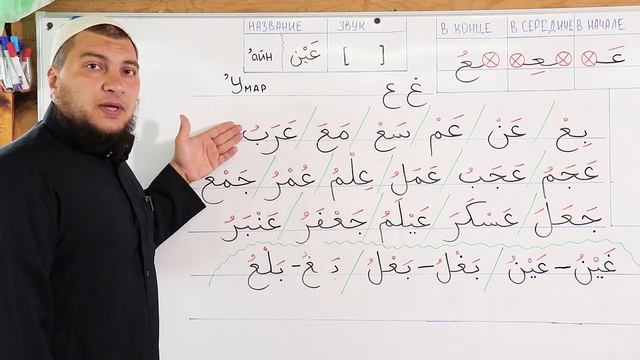 НАЗВАНИЕ ЗВУК В КОНЦЕ В СЕРЕДИНЕ В НАЧАЛЕ
'айн عَيْن [ ] ـعُ ـعِـ عَـ
'Умар
غ ع
بِعْ / عَنْ / عَمْ / سَعْ / مَعَ / عَرَبُ
عَجَمُ / عَجَبُ / عَمَلُ / عِلْمُ / عُمْرُ / جَمْعُ
جَعَلَ / عَسْكَرَ / عَيْلَمُ / جَعْفَرُ / عَنْبَرُ
غَيْنُ – عَيْنُ / بَغْلُ – بَعْلُ / بَلْعُ